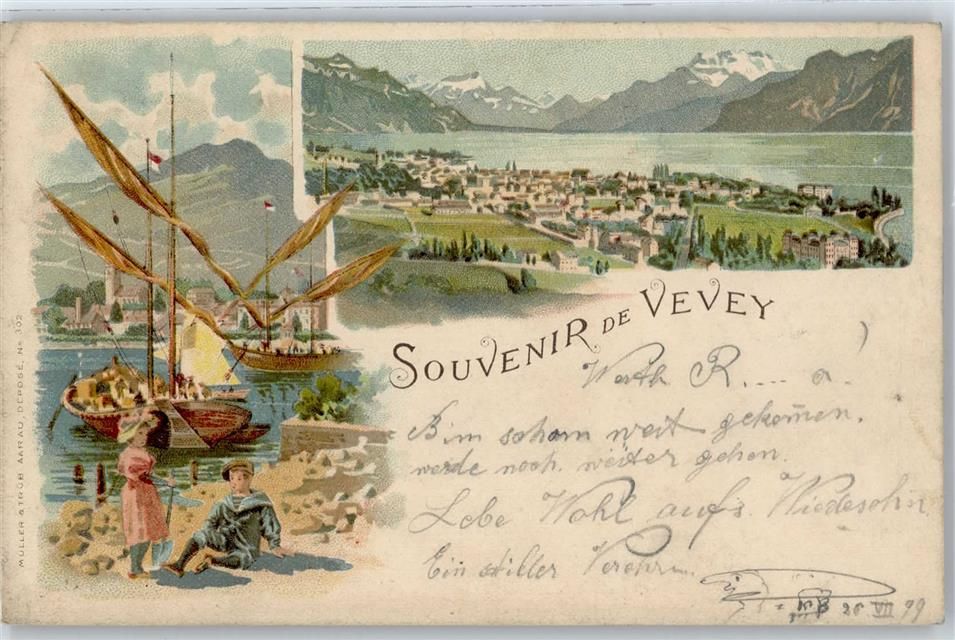 SOUVENIR DE VEVEY
Werth R.... a.
Bim schom weit gekom̄en.
werde noch weiter gehen.
Lebe Wohl auf's Wiedesehn
Ein stiller Verehr...
26 VII 99
MÜLLER & TRÜB AARAU, DÉPOSÉ, No 302